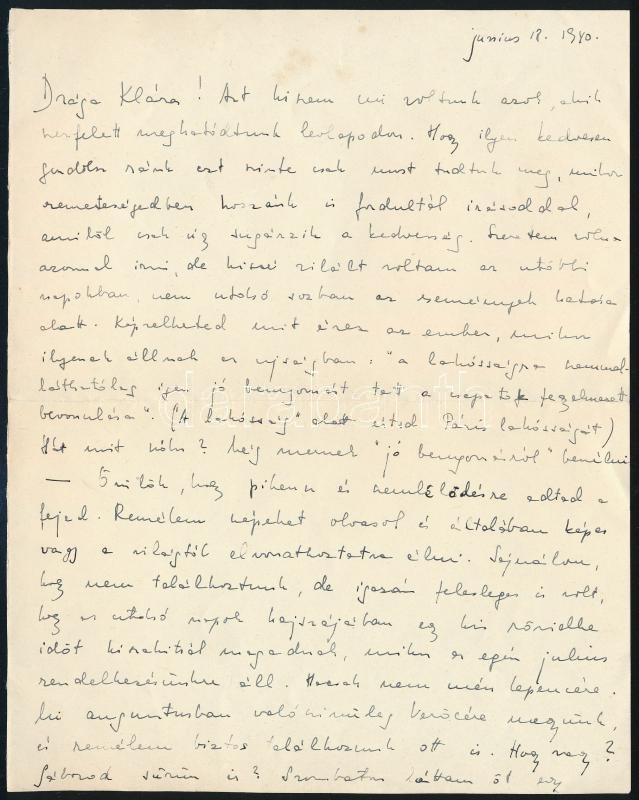 június 18. 1940.
Drága Klára! Azt hiszem mi voltunk azok, akik
nerfelett meghatódtunk levlapodon. Hogy ilyen kedvesen
gondolsz ránk ezt szinte csak most tudtuk meg, mikor
remeteségedben hozzánk is fordultál írásoddal,
amitől csak úgy sugárzik a kedvesség. Szerettem volna
azonnal írni, de kissé zilált voltam az utóbbi
napokban, nem utolsó sorban az események hatása
alatt. Képzelheted mit érez az ember, mikor
ilyenek állnak az ujságban: "a lakósságra szemmel-
láthatólag igen jó benyomást tett a csapatok fegyelmezett
bevonulása". ("A lakósság" alatt értsd Páris lakósságát)
Hát mit szólsz? Még mernek "jó benyomásról" beszélni
— Örülök, hogy pihensz és szemlélődésre adtad a
fejed. Remélem szépeket olvasol és általában képes
vagy a világtól elvonatkoztatva élni. Sajnálom,
hogy nem találkoztunk, de igazán felesleges is volt,
hogy az utolsó napok hajszájában egy kis rövidke
időt kiszakítsál magadnak, mikor az egész julius
rendelkezésünkre áll. Hozzak nem mén lepencére.
Mi augusztusban valószinüleg Verőcére megyünk,
és remélem biztos találkozunk ott is. Hogy vagy?
Gáborod sürün ír? Szombaton láttam őt egy
darabanth